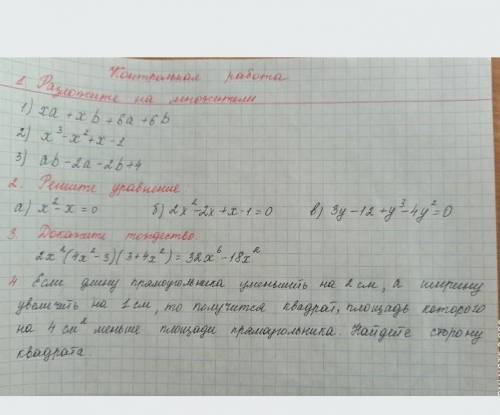 Контрольная работа
1. Разложите на множители
1) xa + xb + 6a + 6b
2) x³ - x² + x - 1
3) ab - 2a - 2b + 4
2. Решите уравнение
а) x² - x = 0 б) 2x² - 2x + x - 1 = 0 в) 3y - 12 + y³ - 4y² = 0
3. Докажите тождество.
2x²(4x² - 3)(3 + 4x²) = 32x⁶ - 18x²
4 Если длину прямоугольника уменьшить на 2 см, а ширину
увеличить на 1 см, то получится квадрат, площадь которого
на 4 см² меньше площади прямоугольника. Найдите сторону
квадрата.